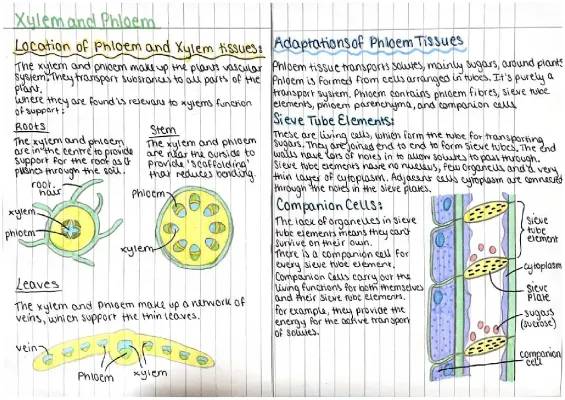 Xylem and Phloem
Location of Phloem and Xylem tissues:
The xylem and phloem make up the plants vascular
system; They transport substances to all parts of the
plant.
Where they are found is relevant to xylems function
of support:
Roots
The xylem and phloem
are in the centre to provide
support for the root as it
pushes through the soil.
root
hair
xylem
phloem
Stem
The xylem and phloem
are near the outside to
provide 'scaffolding'
that reduces bending.
Phloem
xylem
Leaves
The xylem and phloem make up a network of
veins, which support the thin leaves.
vein
Phloem
xylem
Adaptations of Phloem Tissues
Phloem tissue transports solutes, mainly sugars, around plants
Phloem is formed from cells arranged in tubes. It's purely a
transport system. Phloem contains phloem fibres, sieve tube
elements, phloem parenchyma, and companion cells
Sieve Tube Elements:
These are living cells, which form the tube for transporting
sugars. They are joined end to end to form sieve tubes. The end
walls have lots of holes in to allow solutes to pass through.
Sieve tube elements have no nucleus, few organells and a very
thin layer of cytoplasm. Adjacent cells cytoplasm are connected
through the holes in the sieve plates.
Companion Cells:
The lack of organelles in sieve
tube elements means they can't
survive on their own.
There is a companion cell for
every sieve tube element.
Companion Cells carry out the
living functions for both themselves
and their sieve tube elements.
for example, they provide the
energy for the active transport
of solutes.
sieve
tube
element
cytoplasm
sieve
plate
sugars
(sucrose)
companion
cell